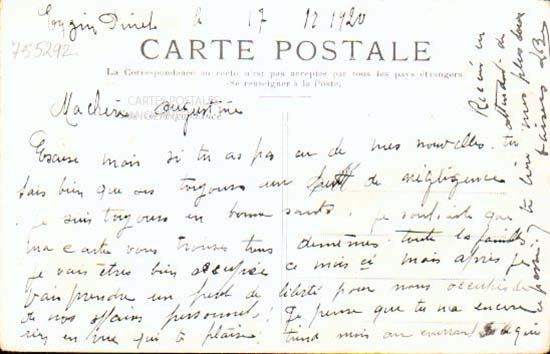 le 17 12 1920
755292
CARTE POSTALE
La Correspondance au recto n'est pas acceptée par tous les pays étrangers.
(Se renseigner à la Poste)
CARTES POSTALES
Ma chérie Augustine
Excuse mais si tu as pas eu de mes nouvelles. tu
sais bien que toujours un de négligence
je suis toujours en bonne santé. je souhaite que
ma carte vous trouve tous de mêmes toute la famille
je vais êtres bien occupée ce mois ci mais après je
vais prendre un peu de liberté pour nous occuper
de nos affaires je pense que tu m'a encore
rien en vue qui à plaise
Reçois en
attendant de
mes plus doux
baisers